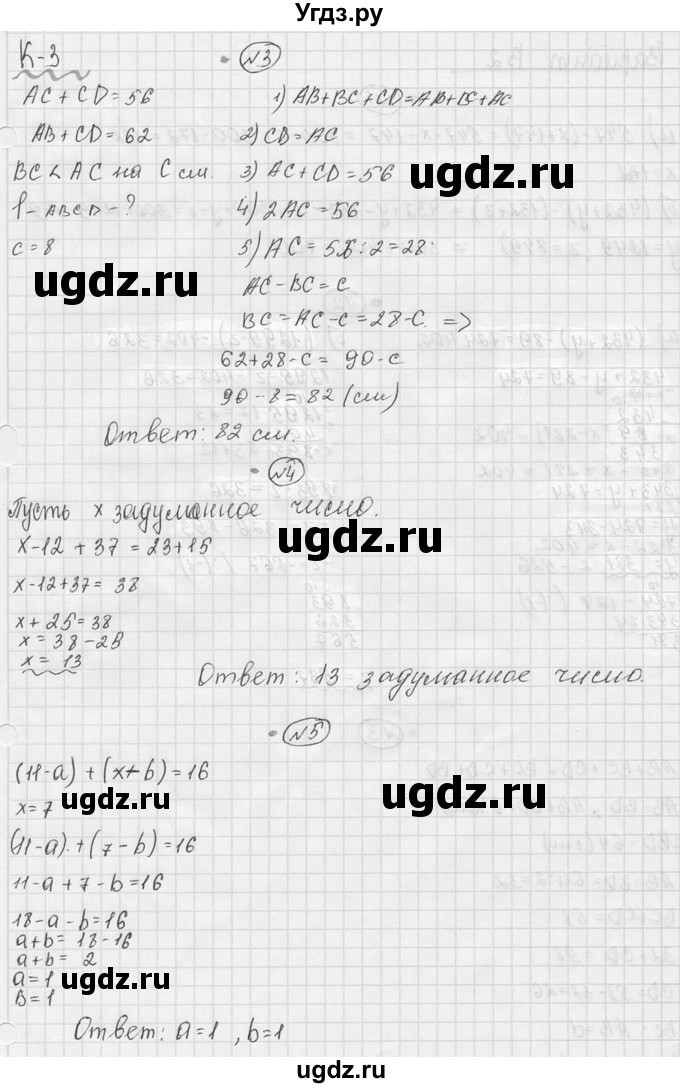 Угдз.ру
К-3
№3
AC + CD = 56
1) AB+BC+CD=AB+BC+AC
AB + CD = 62
2) CD = AC
BC < AC на C см.
3) AC + CD = 56
ugdz.ru
P - ABCD - ?
4) 2AC = 56
c = 8
5) AC = 56 : 2 = 28
ugdz.ru
AC - BC = C
BC = AC - c = 28 - C. =>
62 + 28 - C = 90 - C
90 - 8 = 82 (см)
Ответ: 82 см.
№4
Пусть x задуманное число.
ugdz.ru
x - 12 + 37 = 23 + 15
x - 12 + 37 = 38
x + 25 = 38
x = 38 - 2В
x = 13
Ответ: 13 задуманное число.
№5
(11 - a) + (x - b) = 16
ugdz.ru
ugdz.ru
x = 7
(11 - a) + (7 - b) = 16
11 - a + 7 - b = 16
18 - a - b = 16
a + b = 18 - 16
a + b = 2
ugdz.ru
a = 1
B = 1
Ответ: a = 1, b = 1
ugdz.ru